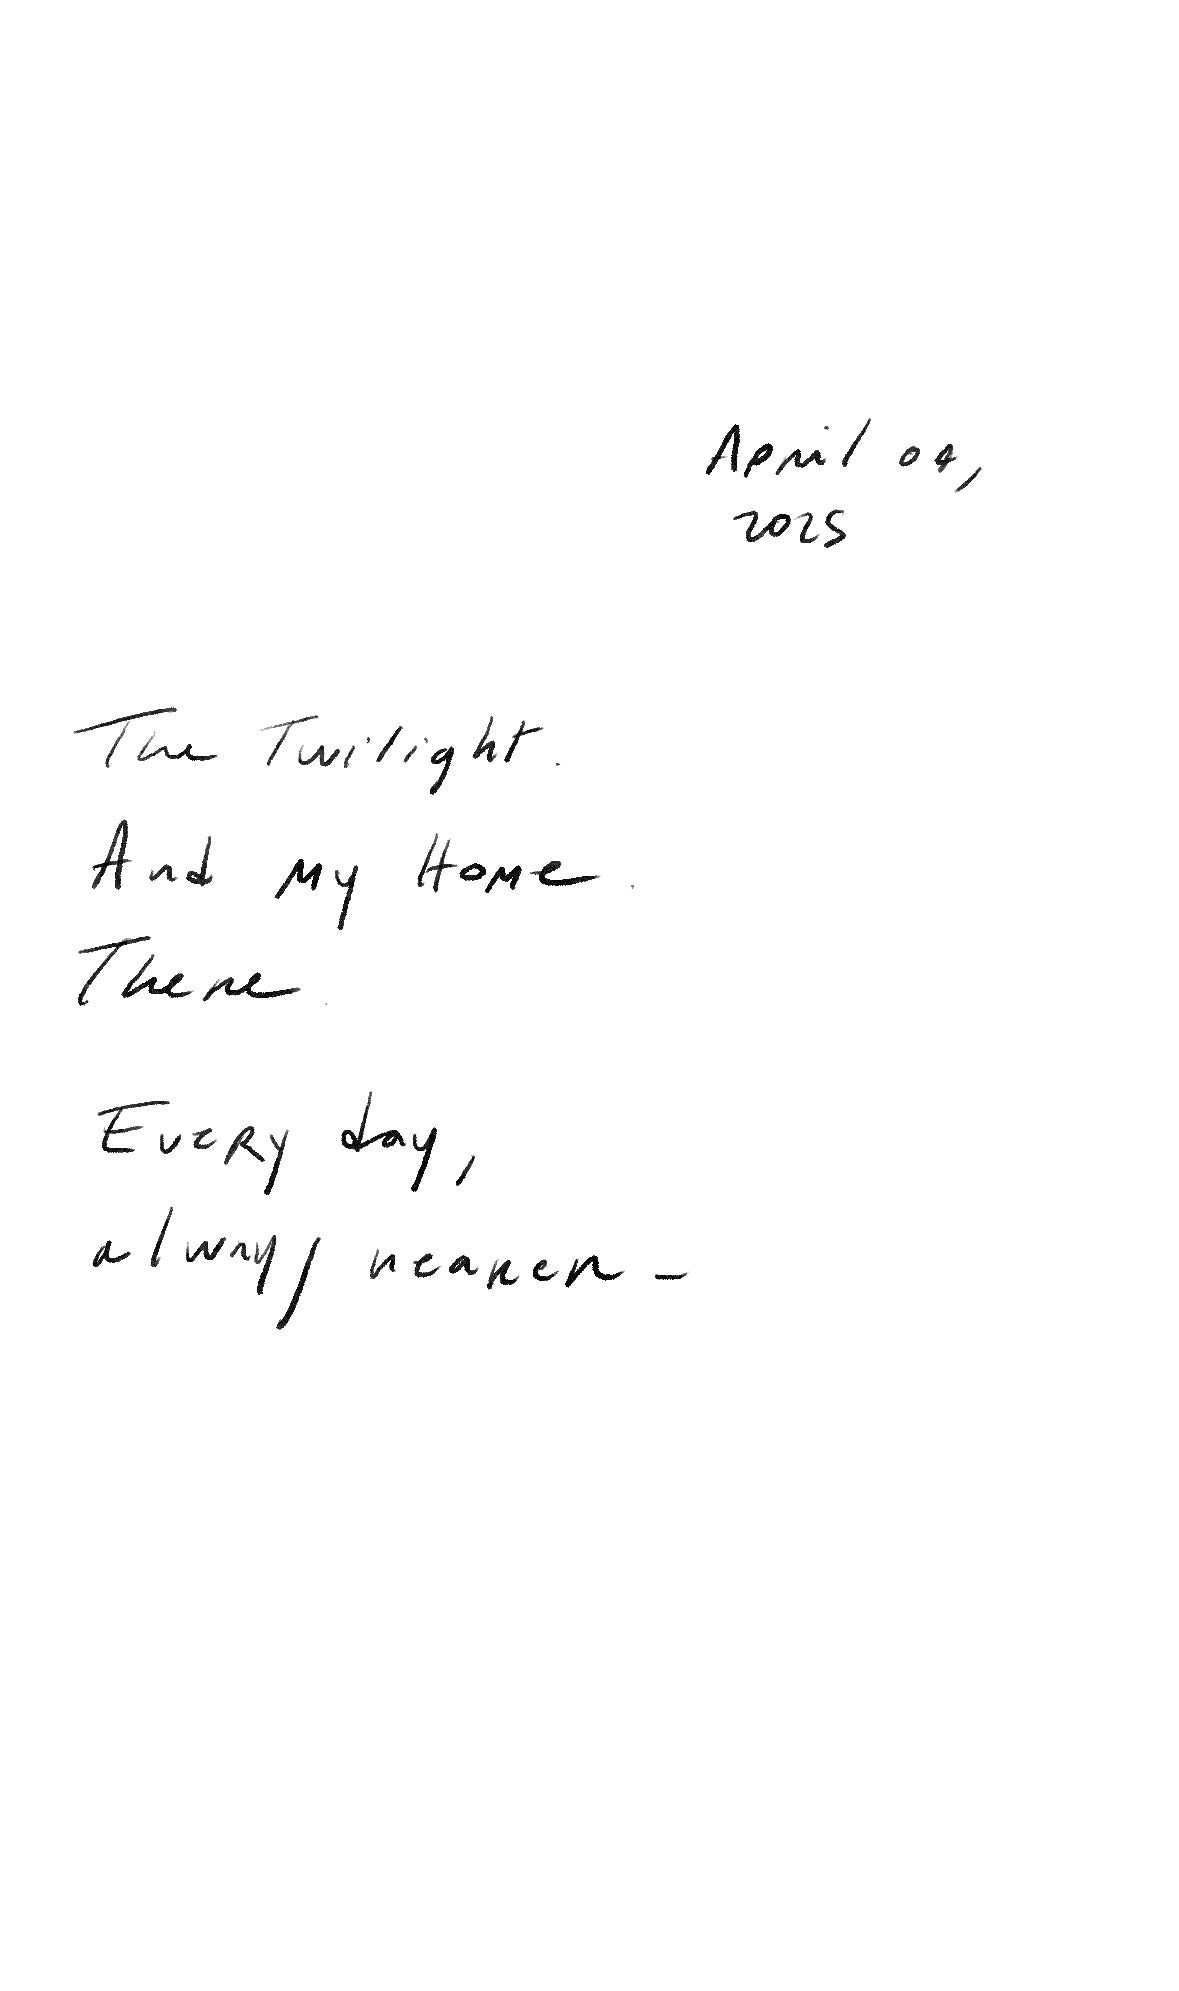 April 04,
2025
The Twilight.
And my Home.
There.
Every day,
always nearer –